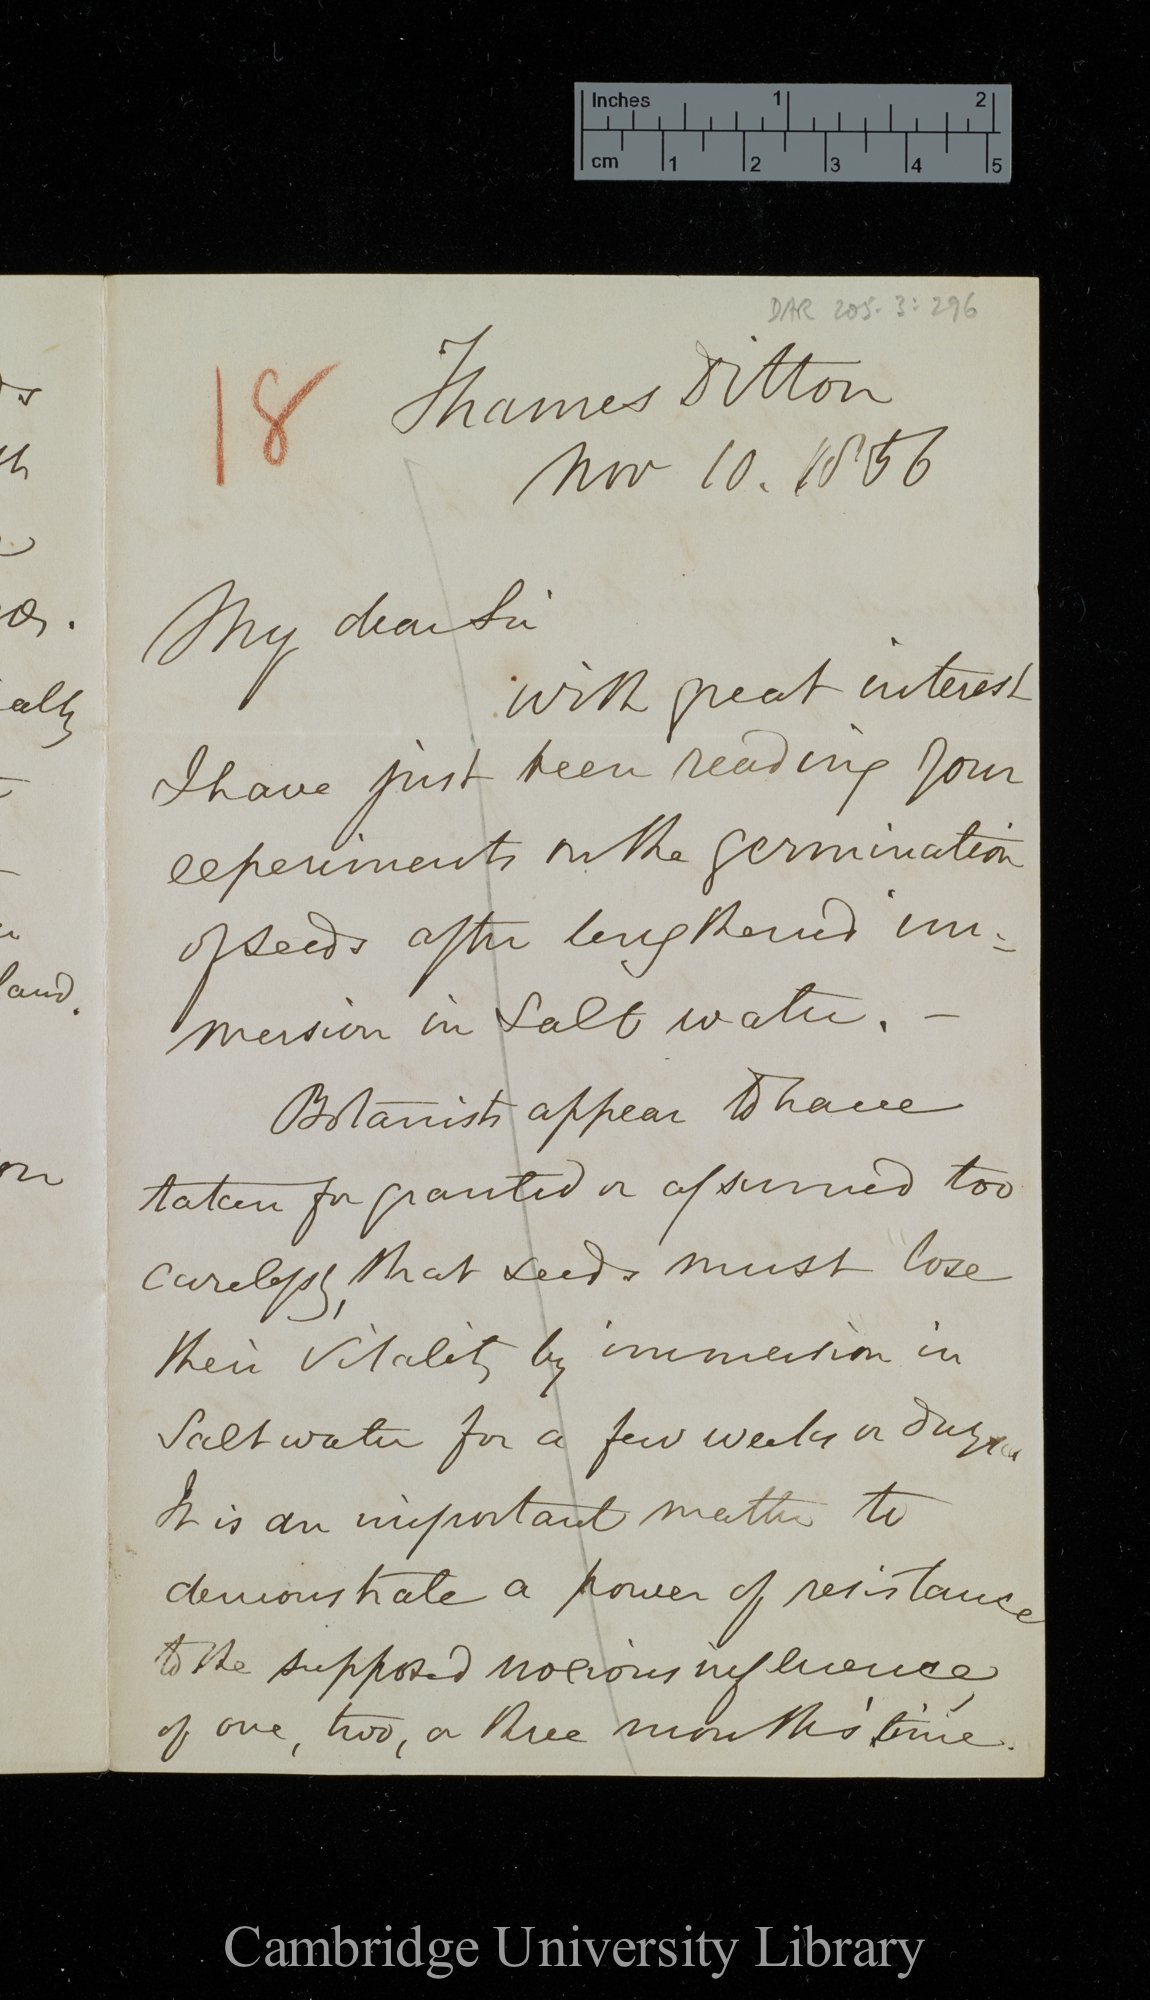 Inches 1 2
cm 1 2 3 4 5
DAR 205.3:296
18
Thames Ditton
Nov 10. 1856
My dear Sir
with great interest
I have just been reading your
experiments on the germination
of seeds after lengthened im-
mersion in Salt water. —
Botanists appear to have
taken for granted or assumed too
carelessly, that seeds must lose
their vitality by immersion in
Salt water for a few weeks or days
It is an important matter to
demonstrate a power of resistance
to the supposed noxious influence
of one, two, or three months' time.
ally
land.
Cambridge University Library